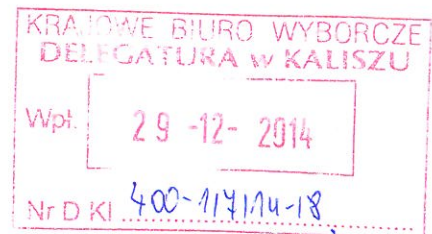 KRAJOWE BIURO WYBORCZE
DELEGATURA w KALISZU
Wpł. 29 -12- 2014
Nr D Kl 400-117/14-18